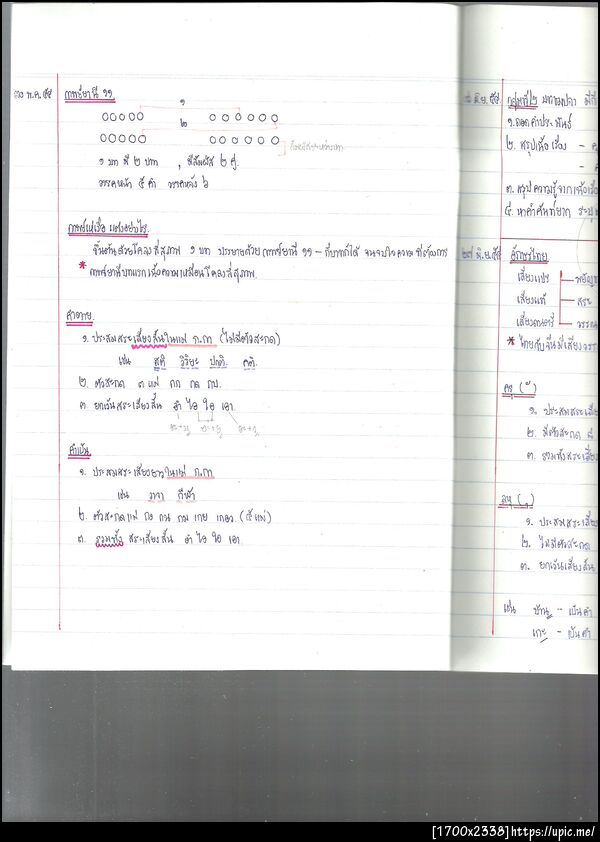 ๓๐ พ.ค. ๕๕
กาพย์ยานี ๑๑
๑
๒
๑ บท มี ๒ บาท , มีสัมผัส ๒ คู่
วรรคหน้า ๕ คำ วรรคหลัง ๖
กาพย์เห่เรือ แต่งอย่างไร
ขึ้นต้นด้วยโคลงสี่สุภาพ ๑ บท บรรยายด้วยกาพย์ยานี ๑๑ - กี่บทก็ได้ จนจบใจความที่ต้องการ
* กาพย์ยานีบทแรกเนื้อความเหมือนโคลงสี่สุภาพ
คำตาย
๑. ประสมสระเสียงสั้นในแม่ ก.กา (ไม่มีตัวสะกด)
เช่น สติ วิริยะ ปกติ คติ
๒. ตัวสะกด ๓ แม่ กก กด กบ
๓. ยกเว้นสระเสียงสั้น อำ ไอ ใอ เอา
คำเป็น
๑. ประสมสระเสียงยาวในแม่ ก.กา
เช่น วาจา กีฬา
๒. ตัวสะกดแม่ กง กน กม เกย เกอว (๕ แม่)
๓. รวมทั้ง สระเสียงสั้น อำ ไอ ใอ เอา
มิ.ย. ๕๕
กลุ่มที่ ๒
๑. ถอดคำประพันธ์
๒. สรุปเนื้อเรื่อง -
๓. สรุปความรู้จากเนื้อเรื่
๔. หาคำศัพท์ยาก
๒๗ มิ.ย. ๕๕
อักษรไทย
เสียงแปร
เสียงแท้ - สระ
เสียงดนตรี - วรรณ
* ไทยกับจีนมีเสียงวรร
ครุ ( ั )
๑. ประสมสระเสีย
๒. มีตัวสะกด
๓. รวมทั้งสระเสีย
ลหุ ( ุ )
๑. ประสมสระเสีย
๒. ไม่มีตัวสะกด
๓. ยกเว้นเสียงสั้น
เช่น - เป็นคำ
- เป็นคำ
[1700x2338]https://upic.me/